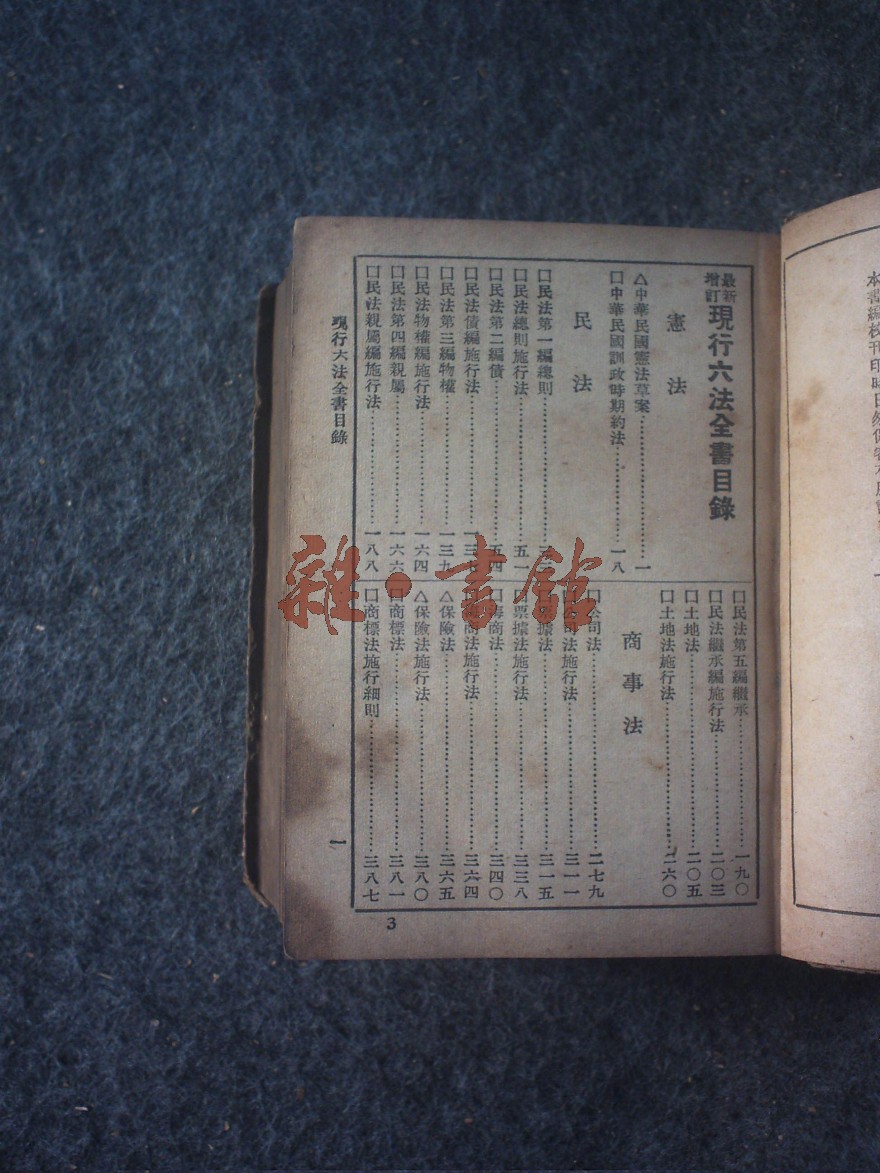 最新增訂現行六法全書目錄
憲法
△中華民國憲法草案…………一
□中華民國訓政時期約法…………一八
民法
□民法第一編總則…………
□民法總則施行法…………五一
□民法第二編債…………五四
□民法債編施行法…………
□民法第三編物權…………一三九
□民法物權編施行法…………一六四
□民法第四編親屬…………一六六
□民法親屬編施行法…………一八八
□民法第五編繼承…………一九〇
□民法繼承編施行法…………二〇三
□土地法…………二〇五
□土地法施行法…………二六〇
商事法
□公司法…………二七九
公司法施行法…………三一一
票據法…………三一五
票據法施行法…………三三八
□海商法…………三四〇
海商法施行法…………三六四
△保險法…………三六五
△保險法施行法…………三八〇
□商標法…………三八一
□商標法施行細則…………三八七
現行六法全書目錄
一
3
雜·書館